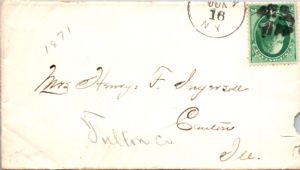 16
N.Y.
1871
Mrs Henry F. Ingersoll
Canton
Fulton Co
Ill.